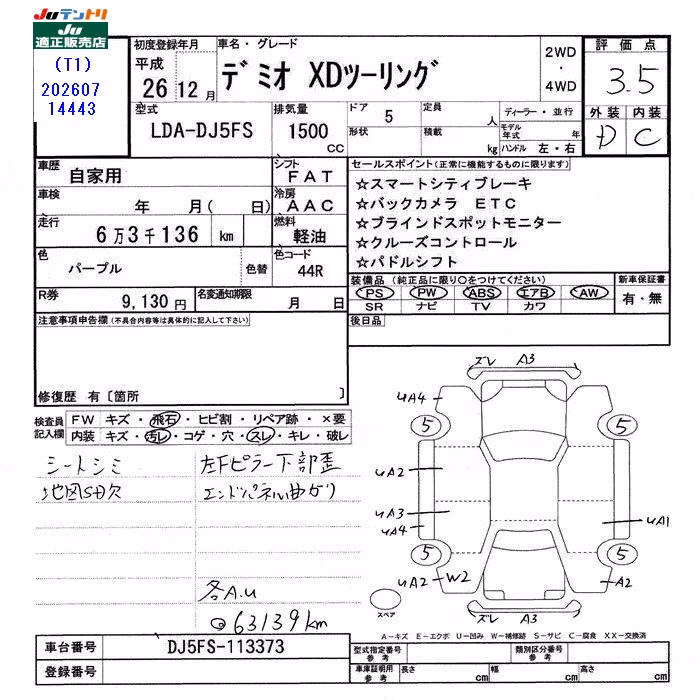 JUテントリ
JU
適正販売店
(T1)
202607
14443
初度登録年月
平成
26 12月
車名・グレード
デミオ XDツーリング
2WD
・
4WD
評価点
3.5
外装 内装
D C
型式
LDA-DJ5FS
排気量
1500
CC
ドア
5
定員
人
形状
積載
kg
ディーラー・並行
モデル年式
年
ハンドル 左・右
車歴
自家用
シフト
FAT
車検
年 月( 日)
冷房
AAC
走行
6万3千136 km
燃料
軽油
色
パープル
色替
色コード
44R
R券
9,130円
名変通知期限
月 日
セールスポイント(正常に機能するものに限ります)
☆スマートシティブレーキ
☆バックカメラ ETC
☆ブラインドスポットモニター
☆クルーズコントロール
☆パドルシフト
装備品 (純正品に限り○をつけてください)
PS PW ABS エアB AW
SR ナビ TV カワ
新車保証書
有・無
後日品
注意事項申告欄(不具合内容等は具体的に記入して下さい)
修復歴 有〔箇所 〕
検査員
記入欄
FW キズ・飛石・ヒビ割・リペア跡・×要
内装 キズ・汚レ・コゲ・穴・スレ・キレ・破レ
シートシミ
地図SD欠
左Fピラー下部歪
エンドパネル曲がり
各A.U
◎63139km
ズレ A3
UA4
5 5
UA2
UA3
UA4
UA1
5 5
UA2 W2
A2
スペア
ズレ A3
A-キズ E-エクボ U-凹み W-補修跡 S-サビ C-腐食 XX-交換済
車台番号
DJ5FS-113373
登録番号
型式指定番号
参考
類別区分番号
参考
車庫証明用
参考
長さ cm 幅 cm 高さ cm